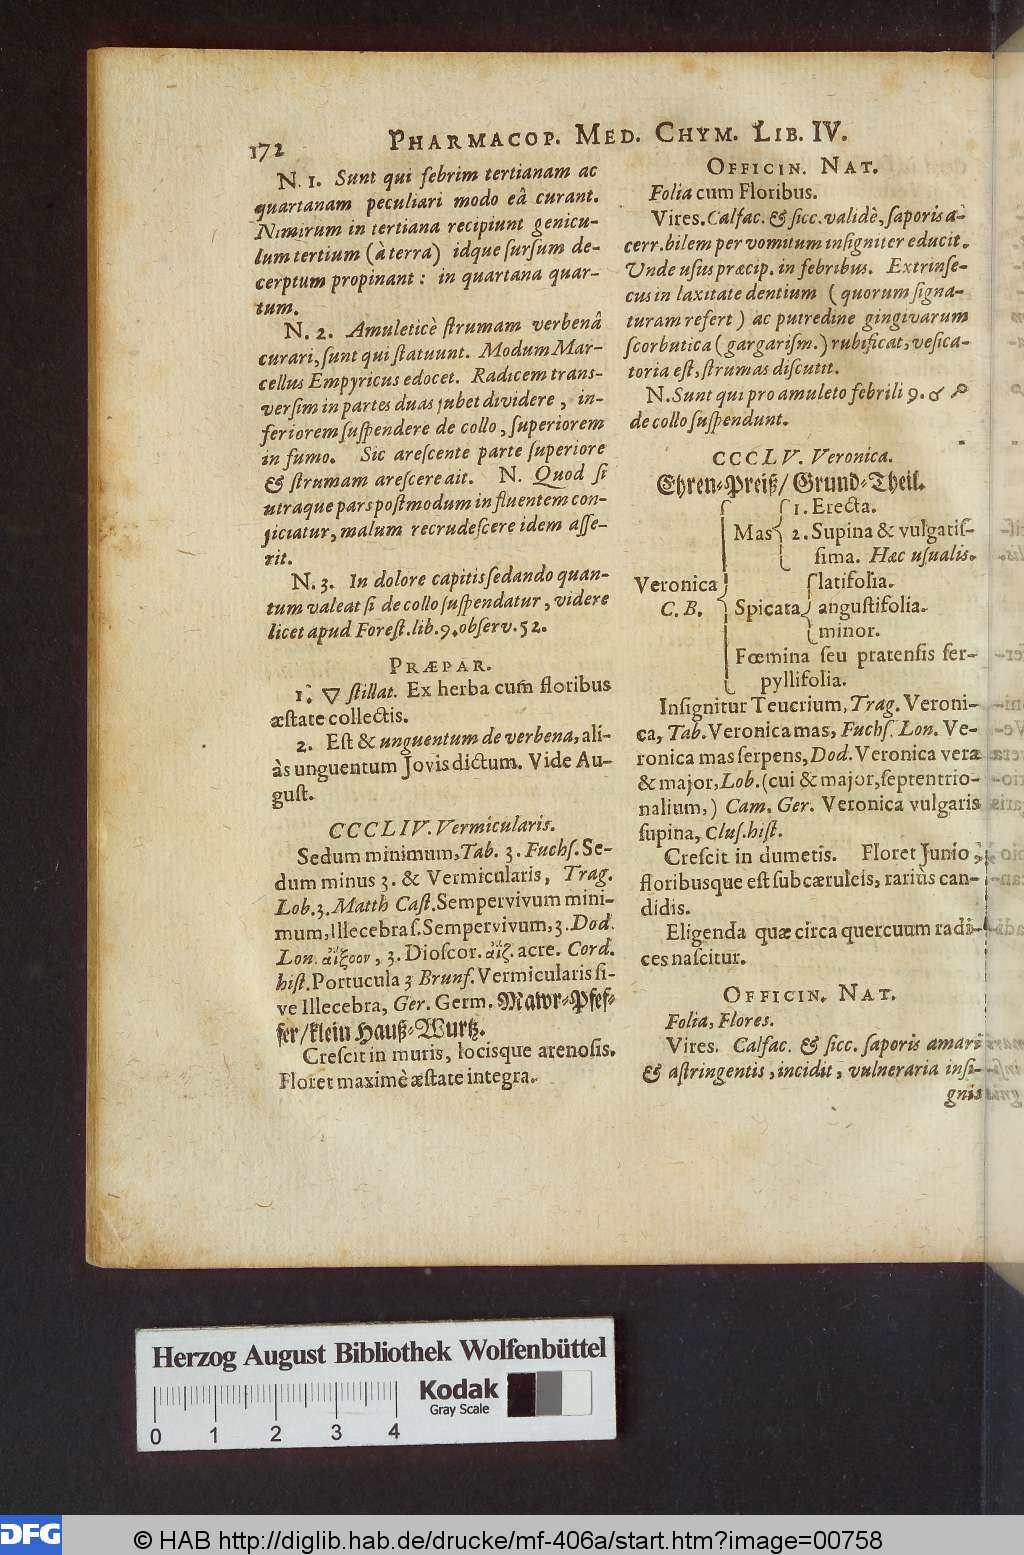 172
PHARMACOP. MED. CHYM. LIB. IV.
N. 1. Sunt qui febrim tertianam ac
quartanam peculiari modo eâ curant.
Nimirum in tertiana recipiunt genicu-
lum tertium (à terra) idque ſurſum de-
cerptum propinant: in quartana quar-
tum.
N. 2. Amuleticè ſtrumam verbenâ
curari, ſunt qui ſtatuunt. Modum Mar-
cellus Empyricus edocet. Radicem trans-
verſim in partes duas jubet dividere, in-
feriorem ſuſpendere de collo, ſuperiorem
in fumo. Sic areſcente parte ſuperiore
& ſtrumam areſcere ait. N. Quod ſi
utraque pars poſtmodum in fluentem con-
jiciatur, malum recrudeſcere idem aſſe-
rit.
N. 3. In dolore capitis ſedando quan-
tum valeat ſi de collo ſuſpendatur, videre
licet apud Foreſt. lib. 9. obſerv. 52.
PRÆPAR.
1. 🜄 ſtillat. Ex herba cum floribus
æſtate collectis.
2. Eſt & unguentum de verbena, ali-
às unguentum Jovis dictum. Vide Au-
guſt.
CCCLIV. Vermicularis.
Sedum minimum, Tab. 3. Fuchſ. Se-
dum minus 3. & Vermicularis, Trag.
Lob. 3. Matth Caſt. Sempervivum mini-
mum, Illecebra ſ. Sempervivum, 3. Dod.
Lon. ἀείζοον, 3. Dioſcor. ἀείζ. acre. Cord.
hiſt. Portucula 3 Brunf. Vermicularis ſi-
ve Illecebra, Ger. Germ. Mawr-Pfef-
fer/klein Hauß-Wurtz.
Creſcit in muris, locisque arenoſis.
Floret maximè æſtate integra.
OFFICIN. NAT.
Folia cum Floribus.
Vires. Calfac. & ſicc. validè, ſaporis a-
cerr. bilem per vomitum inſigniter educit.
Unde uſus præcip. in febribus. Extrinſe-
cus in laxitate dentium (quorum ſigna-
turam refert) ac putredine gingivarum
ſcorbutica (gargariſm.) rubificat, veſica-
toria eſt, ſtrumas diſcutit.
N. Sunt qui pro amuleto febrili 9.
de collo ſuſpendunt.
CCCLV. Veronica.
Ehren-Preiß/ Grund-Theil.
Veronica C. B.
Mas
1. Erecta.
2. Supina & vulgatiſ-
ſima. Hæc uſualis.
Spicata
latifolia.
anguſtifolia.
minor.
Fœmina ſeu pratenſis ſer-
pyllifolia.
Inſignitur Teucrium, Trag. Veroni-
ca, Tab. Veronica mas, Fuchſ. Lon. Ve-
ronica mas ſerpens, Dod. Veronica vera
& major, Lob. (cui & major, ſeptentrio-
nalium,) Cam. Ger. Veronica vulgaris
ſupina, Cluſ. hiſt.
Creſcit in dumetis. Floret Junio,
floribusque eſt ſubcæruleis, rariùs can-
didis.
Eligenda quæ circa quercuum radi-
ces naſcitur.
OFFICIN. NAT.
Folia, Flores.
Vires. Calfac. & ſicc. ſaporis amari
& aſtringentis, incidit, vulneraria inſi-
gnis
Herzog August Bibliothek Wolfenbüttel
Kodak
Gray Scale
0 1 2 3 4
DFG
© HAB http://diglib.hab.de/drucke/mf-406a/start.htm?image=00758